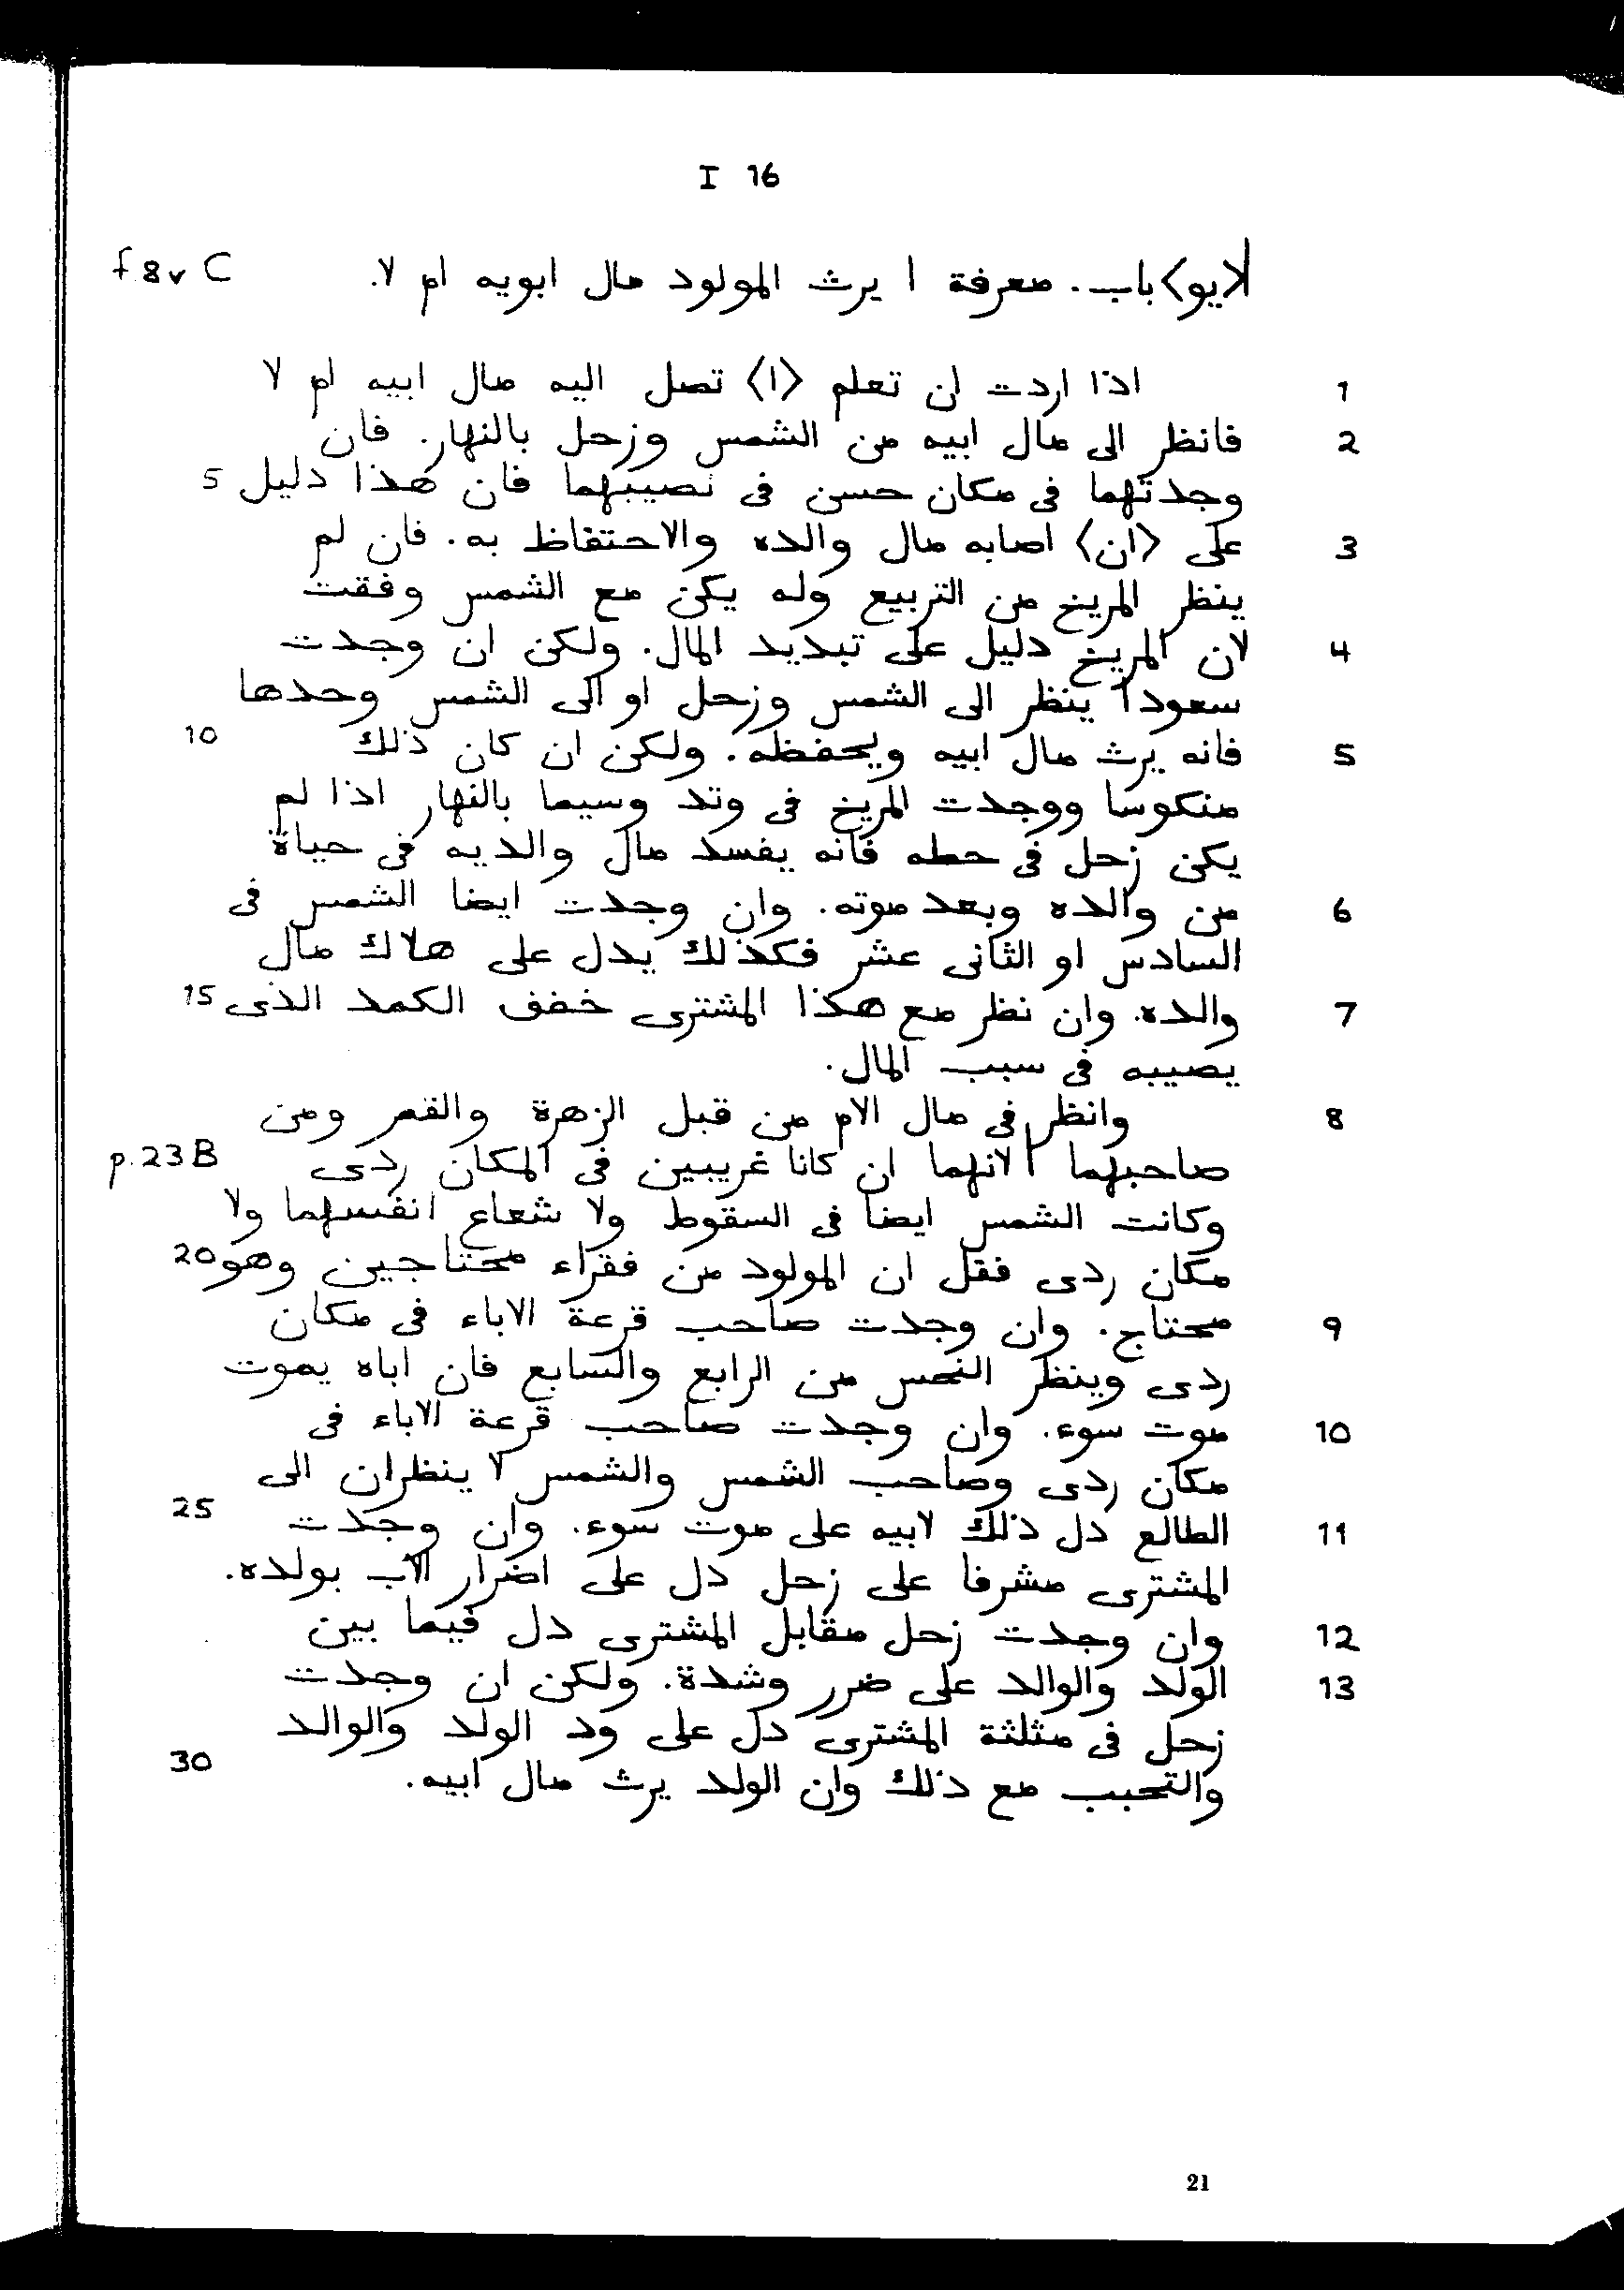 I 16
|<يو> باب. معرفة ا يرث المولود مال ابويه ام لا. f 8v C
1 اذا اردت ان تعلم <ا> تصل اليه مال ابيه ام لا
2 فانظر الى مال ابيه من الشمس وزحل بالنهار. فان
وجدتهما فى مكان حسن فى نصيبهما فان هذا دليل 5
3 على <ان> اصابه مال والده والاحتفاظ به. فان لم
ينظر المريخ من التربيع وله يكن مع الشمس وفقت
4 لان المريخ دليل على تبديد المال. ولكن ان وجدت
سعودا ينظر الى الشمس وزحل او الى الشمس وحدها
5 فانه يرث مال ابيه ويحفظه. ولكن ان كان ذلك 10
منكوسا ووجدت المريخ فى وتد وسيما بالنهار اذا لم
يكن زحل فى حطه فانه يفسد مال والديه فى حياة
6 من والده وبعد موته. وان وجدت ايضا الشمس فى
السادس او الثانى عشر فكذلك يدل على هلاك مال
7 والده. وان نظر مع هذا المشترى خفف الكمد الذى 15
يصيبه فى سبب المال.
8 وانظر فى مال الام من قبل الزهرة والقمر ومن
صاحبهما | لانهما ان كانا غريبين فى المكان ردى p.23 B
وكانت الشمس ايضا فى السقوط ولا شعاع انفسهما ولا
مكان ردى فقل ان المولود من فقراء محتاجين وهو 20
9 محتاج. وان وجدت صاحب قرعة الاباء فى مكان
ردى وينظر النحس من الرابع والسابع فان اباه يموت
10 موت سوء. وان وجدت صاحب قرعة الاباء فى
مكان ردى وصاحب الشمس والشمس لا ينظران الى
11 الطالع دل ذلك لابيه على موت سوء. وان وجدت 25
المشترى مشرفا على زحل دل على اضرار الاب بولده.
12 وان وجدت زحل مقابل المشترى دل فيما بين
13 الولد والوالد على ضرر وشدة. ولكن ان وجدت
زحل فى مثلثة المشترى دل على ود الولد والوالد
والتحبب مع ذلك وان الولد يرث مال ابيه. 30
21